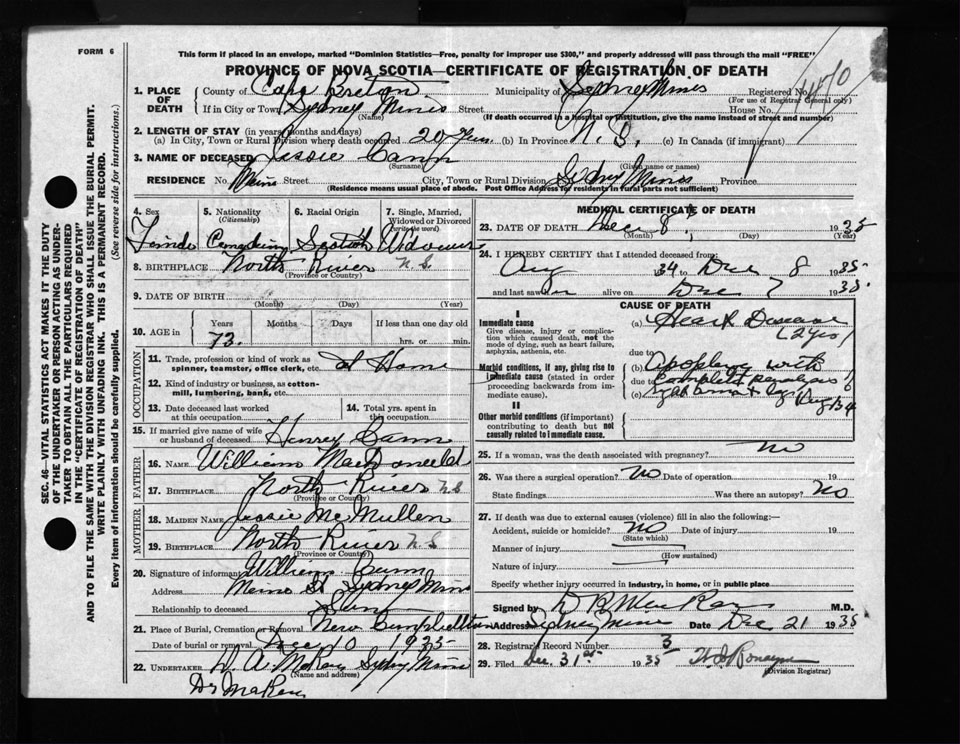 FORM 6
This form if placed in an envelope, marked "Dominion Statistics—Free, penalty for improper use $300," and properly addressed will pass through the mail "FREE"
PROVINCE OF NOVA SCOTIA—CERTIFICATE OF REGISTRATION OF DEATH
1. PLACE OF DEATH County of Cape Breton Municipality of Sydney Mines Registered No.
(For use of Registrar General only)
If in City or Town Sydney Mines Street House No.
(Name) (If death occurred in a hospital or institution, give the name instead of street and number)
2. LENGTH OF STAY (in years, months and days)
(a) In City, Town or Rural Division where death occurred 20 yrs. (b) In Province N. S. (c) In Canada (if immigrant)
3. NAME OF DECEASED Jessie Cann
(Surname) (Given name or names)
RESIDENCE No. Main Street City, Town or Rural Division Sydney Mines Province
(Residence means usual place of abode. Post Office Address for residents in rural parts not sufficient)
4. Sex 5. Nationality (Citizenship) 6. Racial Origin 7. Single, Married, Widowed or Divorced (write the word)
Scotish
8. BIRTHPLACE North River N.S.
(Province or Country)
9. DATE OF BIRTH
(Month) (Day) (Year)
10. AGE in Years Months Days If less than one day old
73. hrs. or min.
OCCUPATION
11. Trade, profession or kind of work as spinner, teamster, office clerk, etc. at Home
12. Kind of industry or business, as cotton-mill, lumbering, bank, etc.
13. Date deceased last worked at this occupation 14. Total yrs. spent in this occupation
15. If married give name of wife or husband of deceased Henrey Cann
FATHER
16. NAME William MacDoneeld
17. BIRTHPLACE North River N.S
(Province or Country)
MOTHER
18. MAIDEN NAME Jessie McMullen
19. BIRTHPLACE North River N.S
(Province or Country)
20. Signature of informant William Cann
Address St Sydney Mines
Relationship to deceased
21. Place of Burial, Cremation or Removal New Campbellton
Date of burial or removal Dec 10 1935
22. UNDERTAKER D. A. McRay Sydney Mines
(Name and address)
Dr McRay
MEDICAL CERTIFICATE OF DEATH
23. DATE OF DEATH Dec 8, 1935
(Month) (Day) (Year)
24. I HEREBY CERTIFY that I attended deceased from:
Aug 1934 to Dec 8 1935
and last saw alive on Dec 7 1935.
CAUSE OF DEATH
I
Immediate cause
Give disease, injury or complication which caused death, not the mode of dying, such as heart failure, asphyxia, asthenia, etc.
(a) Heart Disease
(2 yrs)
due to
Morbid conditions, if any, giving rise to immediate cause (stated in order proceeding backwards from immediate cause).
(b) Apoplexy with
due to complete paralysis of
(c) right arm & leg Aug 1934
II
Other morbid conditions (if important) contributing to death but not causally related to immediate cause.
25. If a woman, was the death associated with pregnancy? no
26. Was there a surgical operation? no Date of operation 19
State findings Was there an autopsy? no
27. If death was due to external causes (violence) fill in also the following:—
Accident, suicide or homicide? no Date of injury 19
(State which)
Manner of injury
(How sustained)
Nature of injury
Specify whether injury occurred in industry, in home, or in public place
Signed by M.D.
Address Sydney Mines Date Dec 21 1935
28. Registrar's Record Number 3
29. Filed Dec. 31st 1935
(Division Registrar)
SEC. 46—VITAL STATISTICS ACT MAKES IT THE DUTY
OF THE UNDERTAKER OR PERSON ACTING AS UNDER-
TAKER TO OBTAIN ALL THE PARTICULARS REQUIRED
IN THE "CERTIFICATE OF REGISTRATION OF DEATH"
AND TO FILE THE SAME WITH THE DIVISION REGISTRAR WHO SHALL ISSUE THE BURIAL PERMIT.
WRITE PLAINLY WITH UNFADING INK. THIS IS A PERMANENT RECORD.
Every item of information should be carefully supplied. (See reverse side for instructions.)